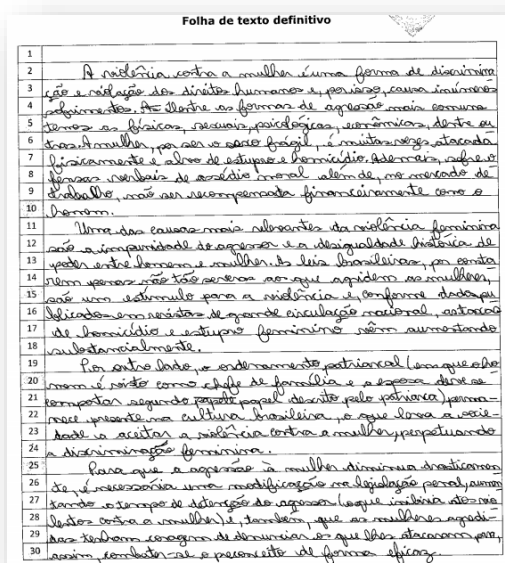 Folha de texto definitivo
1
2 A violência contra a mulher é uma forma de discrimina
3 ção e violação dos direitos humanos e, por isso, causa inúmeros
4 sofrimentos. Dentre as formas de agressão mais comuns
5 temos as físicas, sexuais, psicológicas, econômicas, dentre ou
6 tras. A mulher, por ser o sexo frágil, é muitas vezes atacada
7 fisicamente e alvo de estupro e homicídio. Ademais, sofre o
8 fensas verbais de assédio moral além de, no mercado de
9 trabalho, não ser recompensada financeiramente como o
10 homem.
11 Uma das causas mais relevantes da violência feminina
12 são a impunidade do agressor e a desigualdade histórica de
13 poder entre homem e mulher. As leis brasileiras, por conta
14 rem penas não tão severas aos que agridem as mulheres,
15 são um estímulo para a violência e, conforme dados pu
16 blicados em revistas de grande circulação nacional, a taxa
17 de homicídio e estupro feminino vêm aumentando
18 substancialmente.
19 Por outro lado, o ordenamento patriarcal (em que o ho
20 mem é visto como chefe de família e a esposa deve se
21 comportar segundo papel descrito pelo patriarca) perma-
22 nece presente na cultura brasileira, o que leva a socie-
23 dade a aceitar a violência contra a mulher, perpetuando
24 a discriminação feminina.
25 Para que a agressão à mulher diminua drasticamen
26 te, é necessária uma modificação na legislação penal, aumen
27 tando o tempo de detenção do agressor (o que inibiria atos vio
28 lentos contra a mulher) e, também, que as mulheres agredi-
29 das tenham coragem de denunciar os que lhes atacaram para,
30 assim, combater-se o preconceito de forma eficaz.